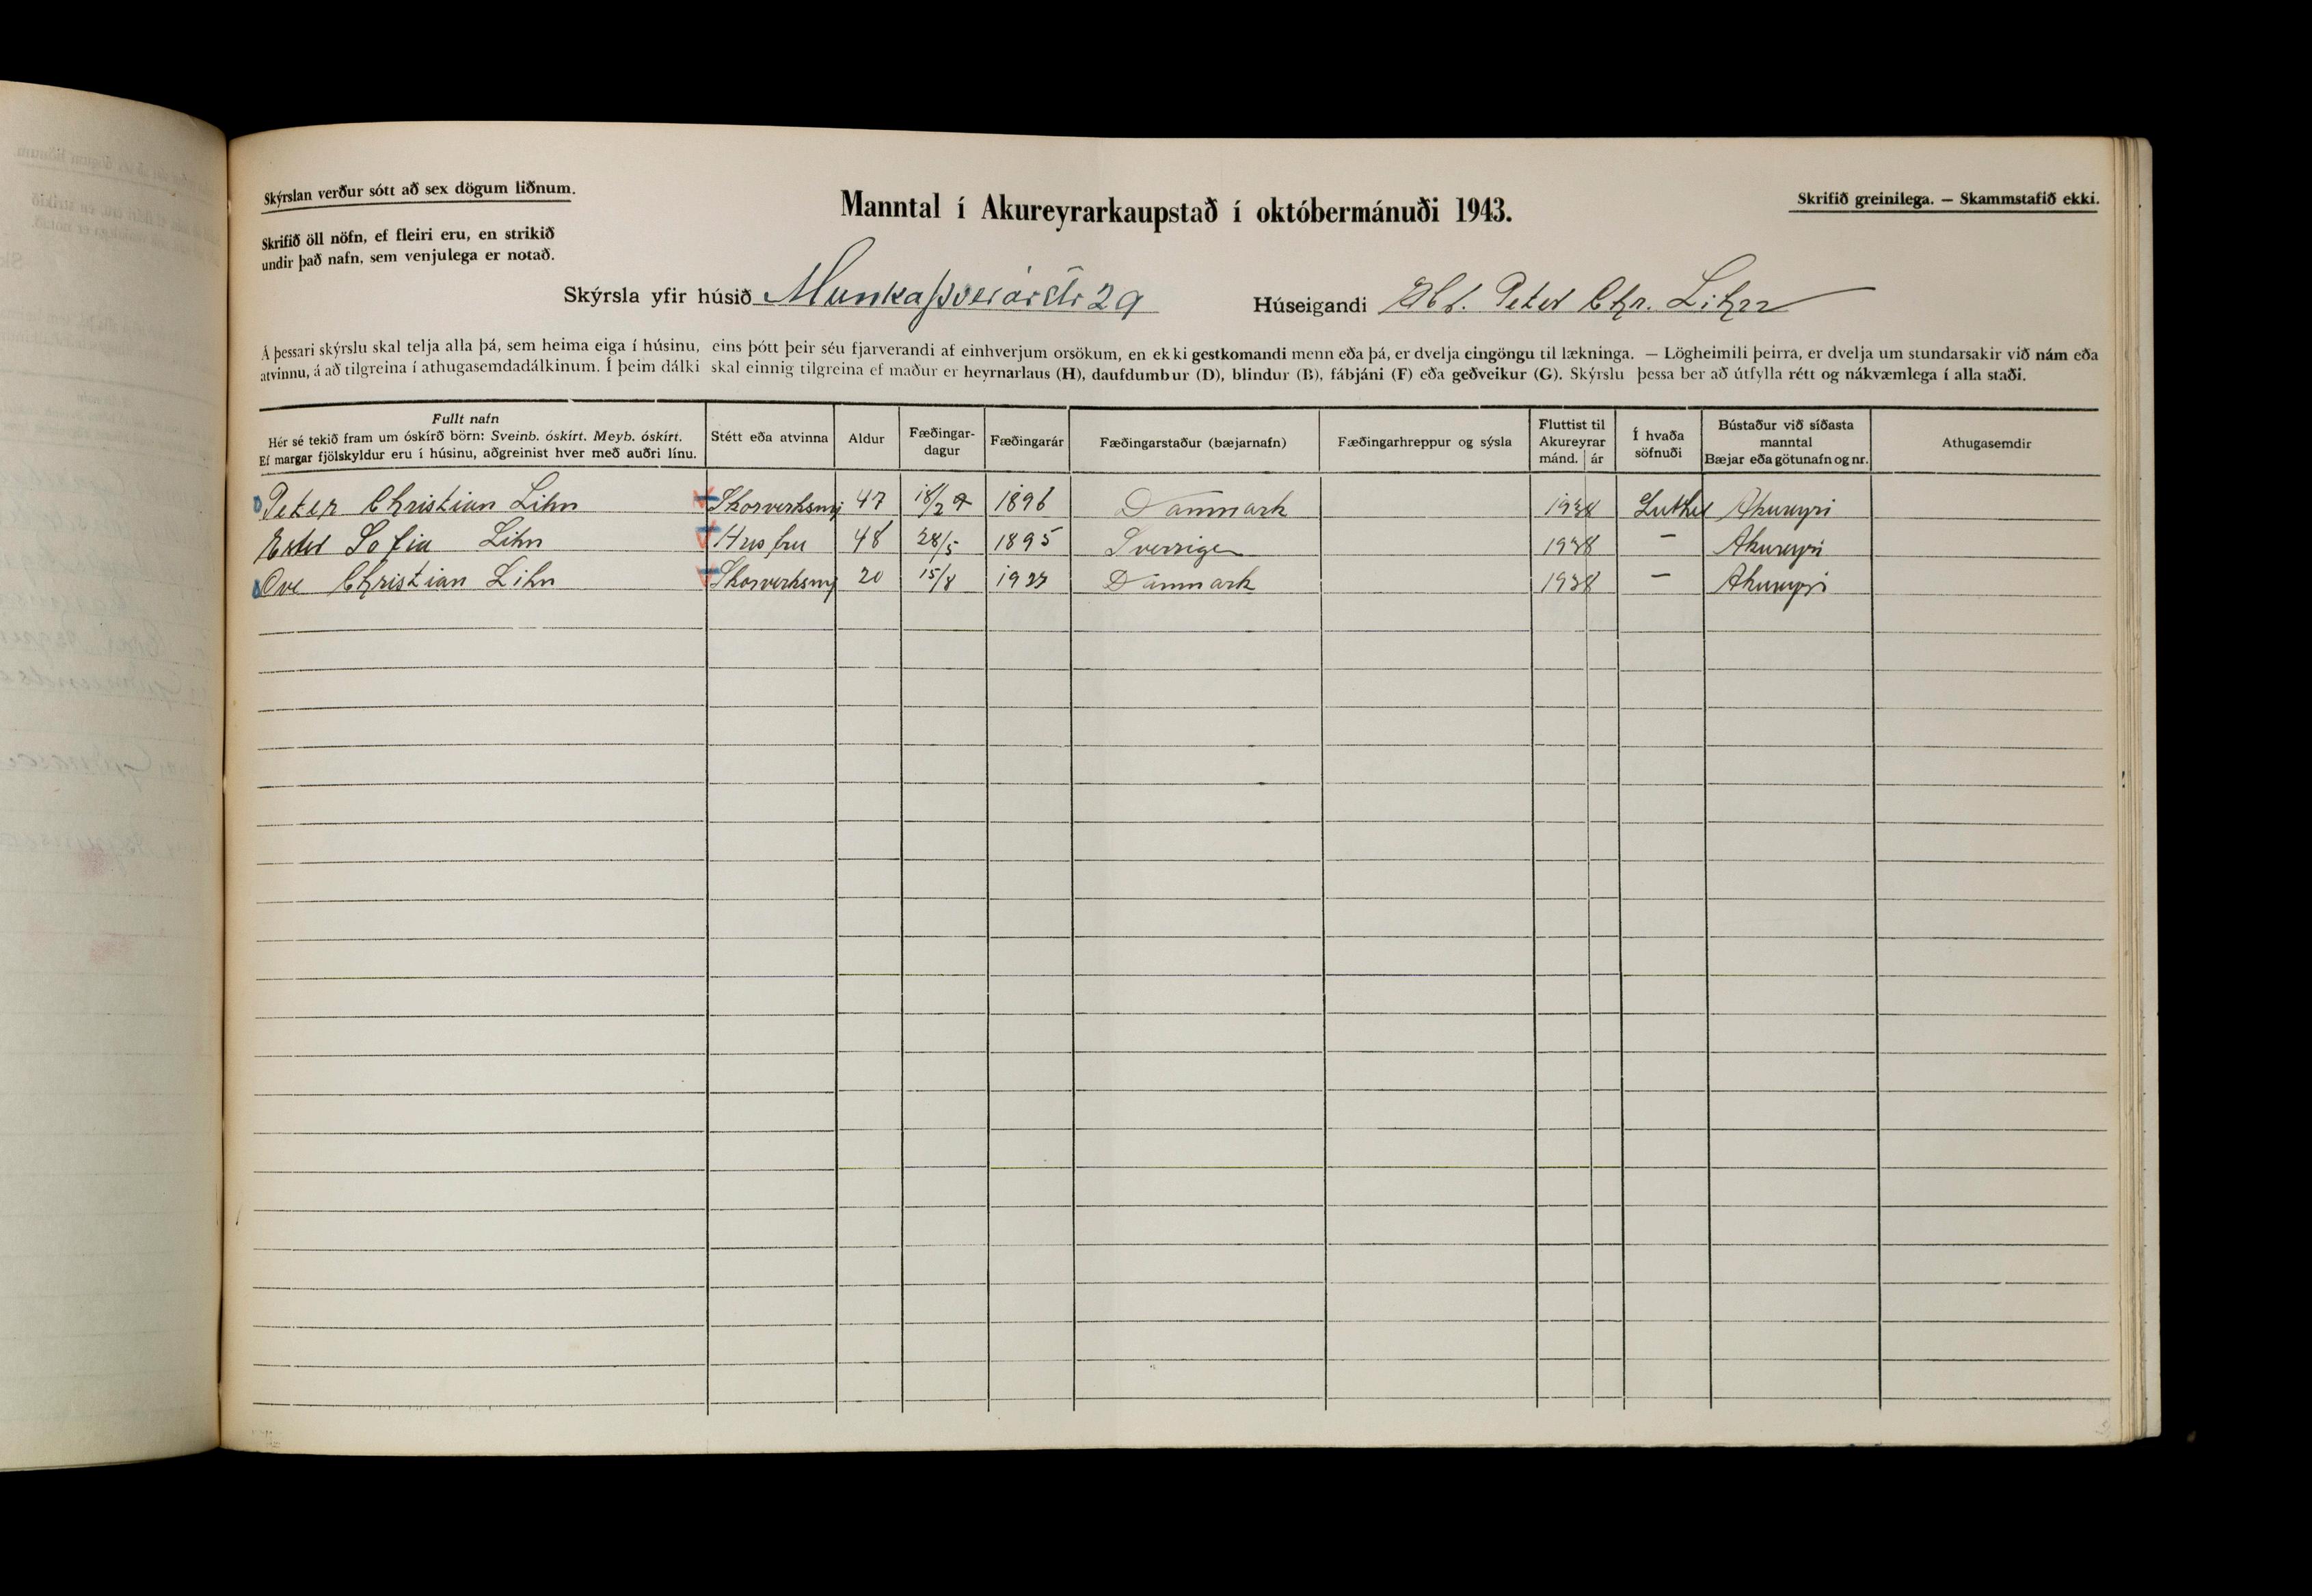 Skýrslan verður sótt að sex dögum liðnum.
Skrifið öll nöfn, ef fleiri eru, en strikið
undir það nafn, sem venjulega er notað.
Manntal í Akureyrarkaupstað í októbermánuði 1943.
Skrifið greinilega. — Skammstafið ekki.
Skýrsla yfir húsið Munkaþverárstr 29 Húseigandi Peter Chr. Lihn
Á þessari skýrslu skal telja alla þá, sem heima eiga í húsinu, eins þótt þeir séu fjarverandi af einhverjum orsökum, en ekki gestkomandi menn eða þá, er dvelja eingöngu til lækninga. — Lögheimili þeirra, er dvelja um stundarsakir við nám eða
atvinnu, á að tilgreina í athugasemdadálkinum. Í þeim dálki skal einnig tilgreina ef maður er heyrnarlaus (H), daufdumbur (D), blindur (B), fábjáni (F) eða geðveikur (G). Skýrslu þessa ber að útfylla rétt og nákvæmlega í alla staði.
Fullt nafn
Hér sé tekið fram um óskírð börn: Sveinb. óskírt. Meyb. óskírt.
Ef margar fjölskyldur eru í húsinu, aðgreinist hver með auðri línu.
Stétt eða atvinna
Aldur
Fæðingar-
dagur
Fæðingarár
Fæðingarstaður (bæjarnafn)
Fæðingarhreppur og sýsla
Fluttist til
Akureyrar
mánd. ár
Í hvaða
söfnuði
Bústaður við síðasta
manntal
Bæjar eða götunafn og nr.
Athugasemdir
Peter Christian Lihn Skorverksmj 47 18/2 1896 Danmark 1938 Luther Akureyri
Ester Sofia Lihn Husfru 48 28/5 1895 Sverrige 1938 — Akureyri
Ove Christian Lihn Skorverksmj 20 15/8 1923 Danmark 1938 — Akureyri